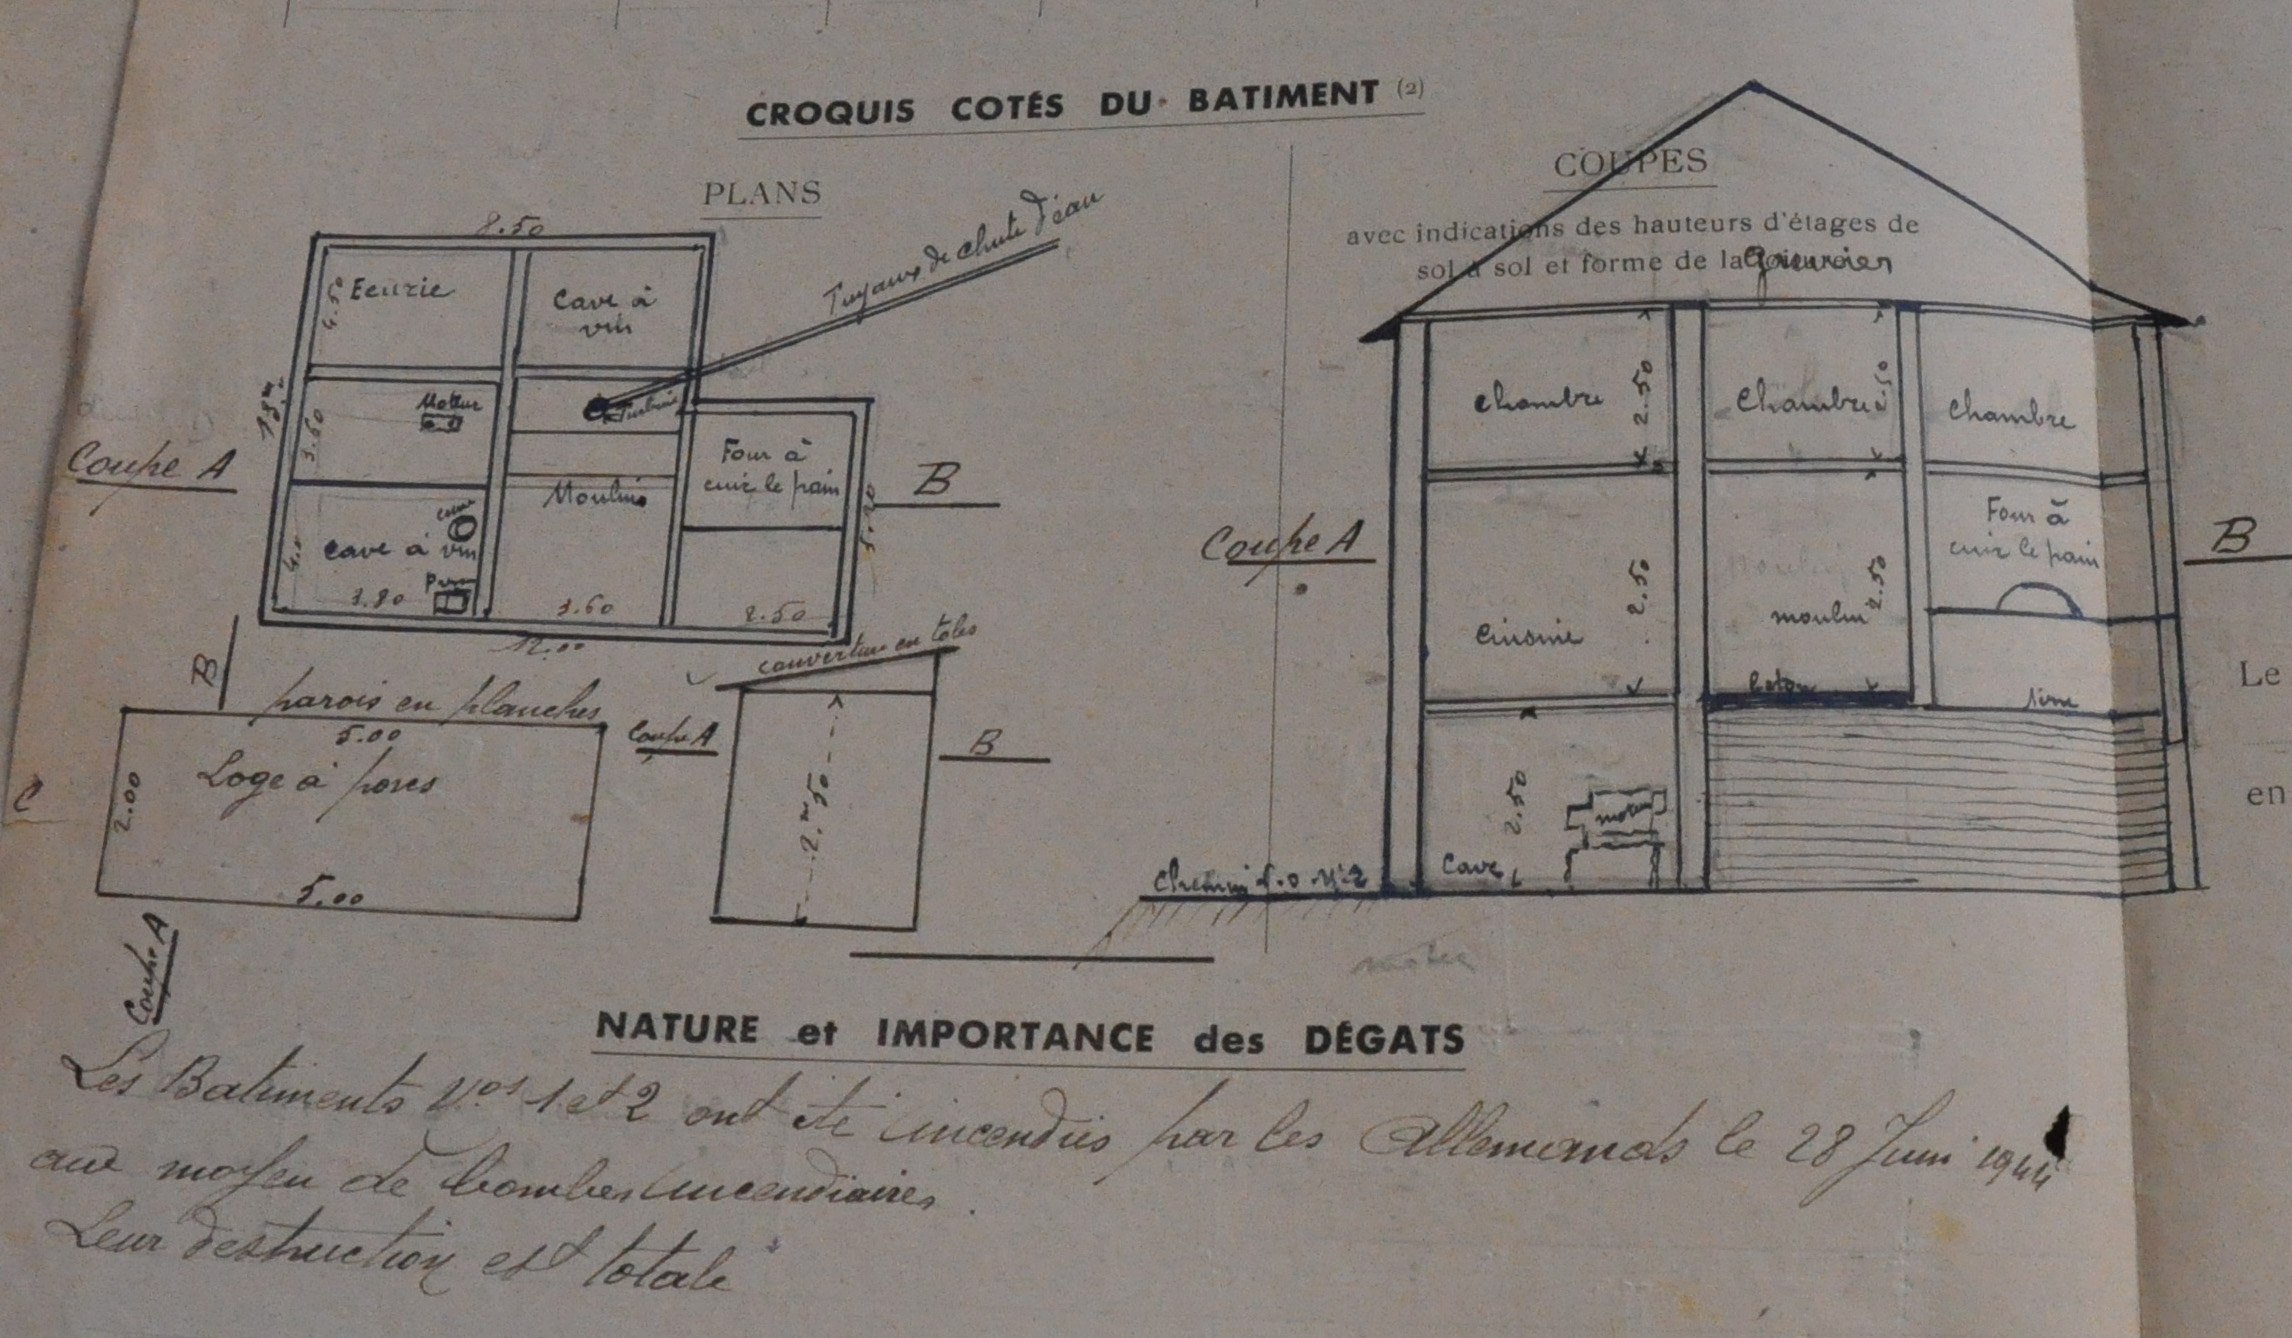 CROQUIS COTÉS DU BATIMENT (2)
PLANS
8.50
Ecurie
4.50
Cave à
vin
Tuyaux de chute d'eau
Moteur
Turbine
3.60
Coupe A
Four à
cuir le pain
B
5.20
Moulin
cave à vin
4.0
3.80
3.60
2.50
12.00
B
parois en planches
5.00
Loge à porcs
2.00
C
5.00
Coupe A
couverture en toles
Coupe A
B
2.m50
COUPES
avec indications des hauteurs d'étages de
sol à sol et forme de la
chambre
2.50
Chambre
chambre
Coupe A
Four à
cuir le pain
B
cuisine
2.50
moulin
2.50
beton
Cave
2.50
moteur
Chemin
Le
en
NATURE et IMPORTANCE des DÉGATS
Les Batiments Nos 1 et 2 ont été incendiés par les Allemands le 28 Juin 1944
au moyen de bombes incendiaires.
Leur destruction est totale